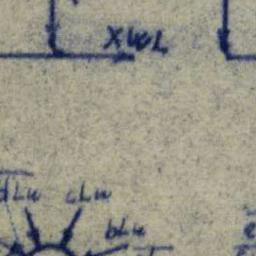 XWL
dLw cLw
bLw